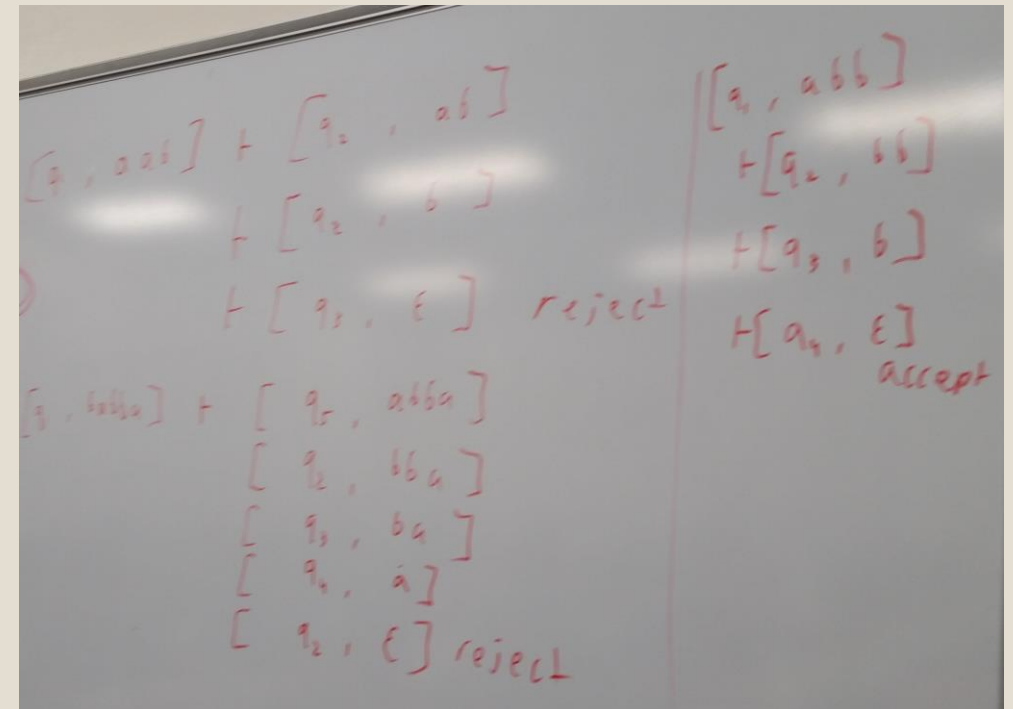 [q, aab] ⊢ [q₂, ab]
⊢ [q₂, b]
⊢ [q₃, ε] reject
[q, babba] ⊢ [q₅, abba]
[q₂, bba]
[q₃, ba]
[q₄, a]
[q₂, ε] reject
[q₁, abb]
⊢ [q₂, bb]
⊢ [q₃, b]
⊢ [q₄, ε]
accept